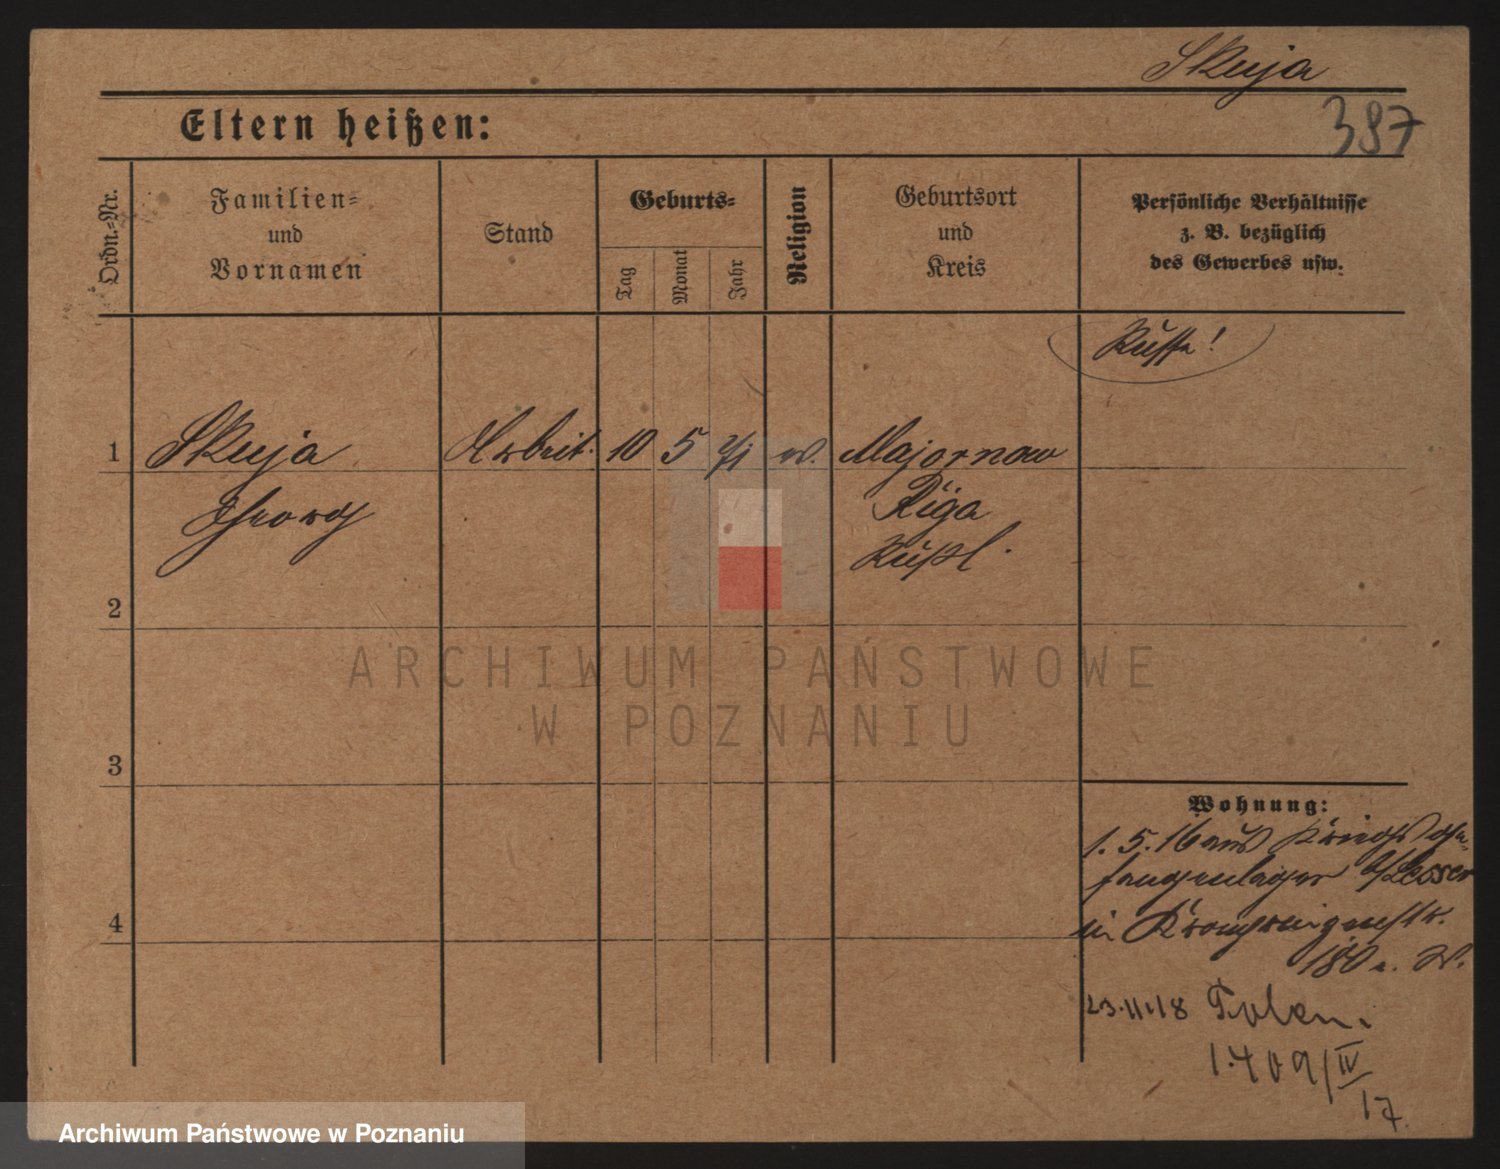 Skuja
387
Eltern heißen:
Ordn.-Nr.
Familien-
und
Vornamen
Stand
Geburts-
Tag
Monat
Jahr
Religion
Geburtsort
und
Kreis
Persönliche Verhältnisse
z. B. bezüglich
des Gewerbes usw.
Russe!
1 Skuja Arbeit. 10 5 71 Majornow
Georg Riga
Rußl.
2
ARCHIWUM PAŃSTWOWE
W POZNANIU
3
Wohnung:
1. 5. 16 aus Kriegsge-
fangenlager
4
in
180 a. W.
23.11.18 Polen.
1409/IV
17.
Archiwum Państwowe w Poznaniu